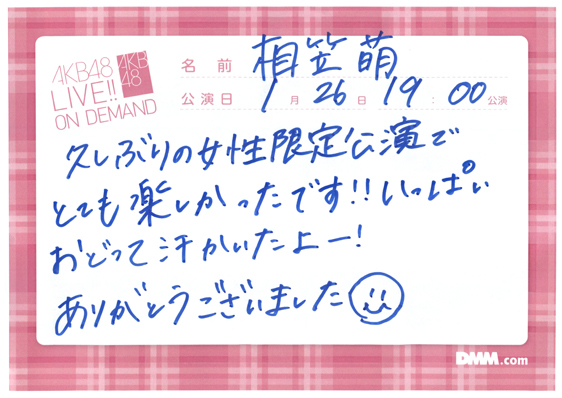 AKB48
LIVE!!
ON DEMAND
AKB
48
名前 相笠萌
公演日 1月26日 19:00公演
久しぶりの女性限定公演で
とても楽しかったです!!いっぱい
おどって汗かいたよー!
ありがとうございました
DMM.com